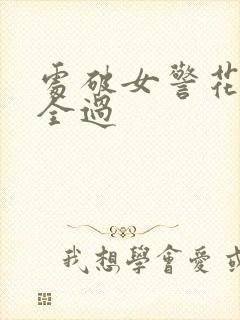 處破女警花
全過
我想學會愛或